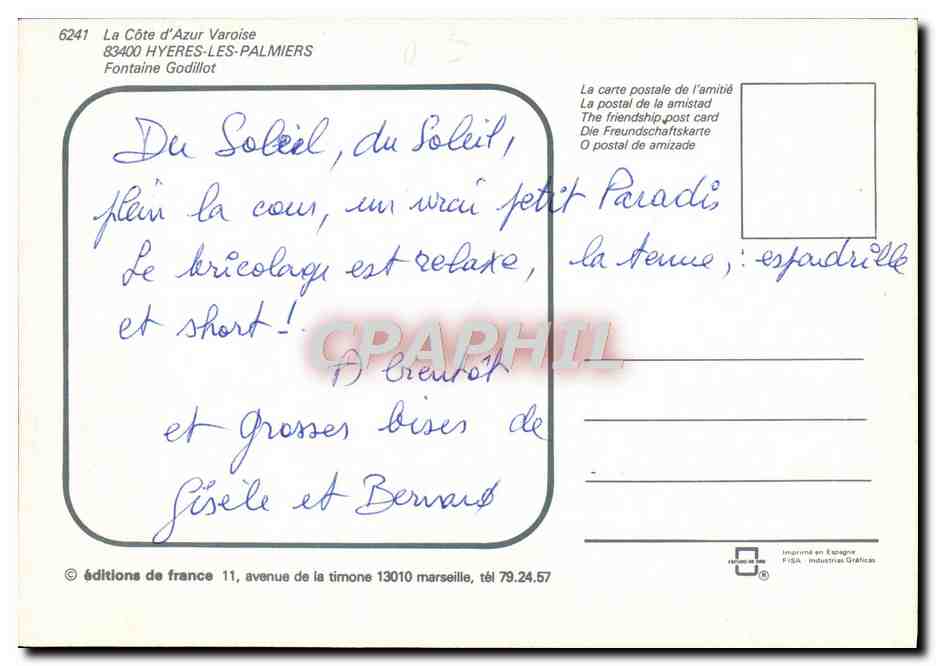 6241 La Côte d'Azur Varoise
83400 HYERES-LES-PALMIERS
Fontaine Godillot
La carte postale de l'amitié
La postal de la amistad
The friendship post card
Die Freundschaftskarte
O postal de amizade
Du Soleil, du Soleil,
plein la cour, un vrai petit Paradis
Le bricolage est relaxe, la tenue, : espadrille
et short !
A bientôt
et grosses bises de
Gisèle et Bernard
CPAPHIL
© éditions de france 11, avenue de la timone 13010 marseille, tél 79.24.57
®
Imprimé en Espagne
FISA - Industrias Gráficas